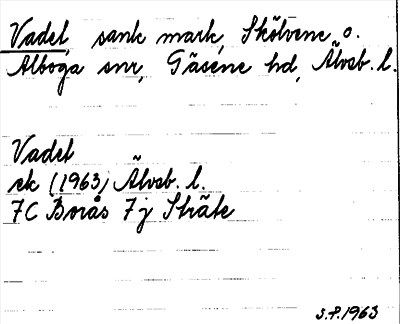 Vadet, sank mark, Skölvene o.
Alboga snr, Gäsene hd, Älvsb. l.
Vadet
ek (1963) Älvsb. l.
7C Borås 7j Stråle
S.P. 1963